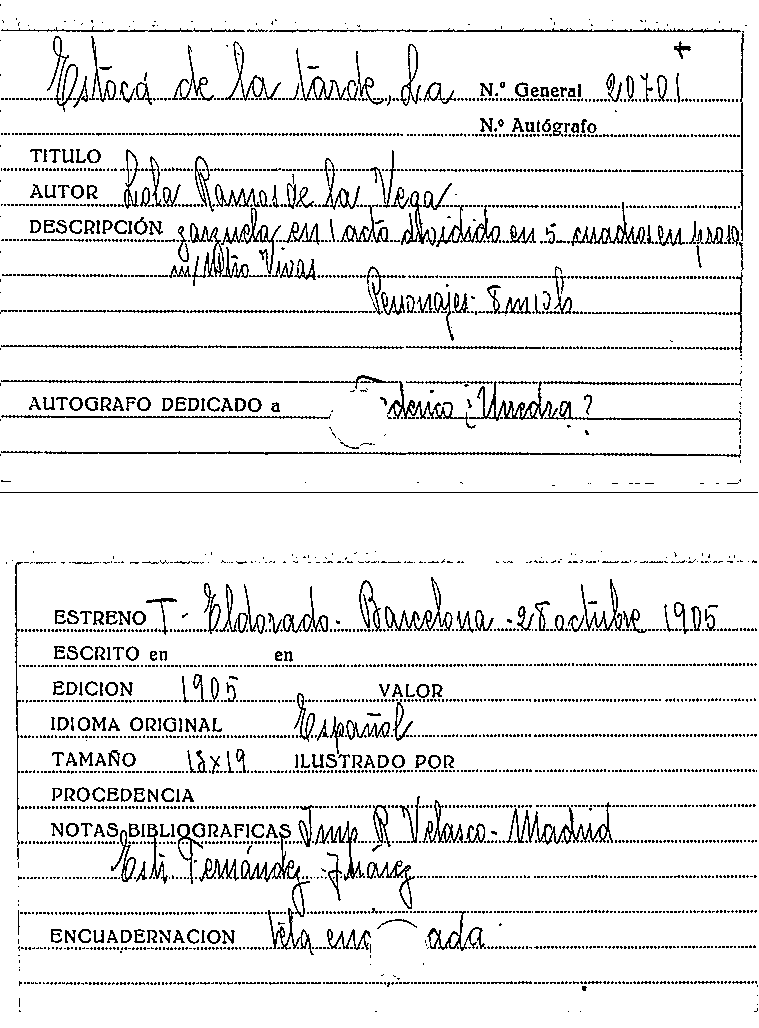 Estocá de la tarde, La N.º General 20701
N.º Autógrafo
TITULO
AUTOR Lola Ramos de la Vega
DESCRIPCIÓN zarzuela en 1 acto dividido en 5 cuadros en prosa
m/ Mtro Vivas
Personajes: 8 m 13 h
AUTOGRAFO DEDICADO a derico ¿Urredra?
ESTRENO T. Eldorado - Barcelona - 28 octubre 1905
ESCRITO en en
EDICION 1905 VALOR
IDIOMA ORIGINAL Español
TAMAÑO 13x19 ILUSTRADO POR
PROCEDENCIA
NOTAS BIBLIOGRAFICAS Imp R Velasco - Madrid
Esti. Fernández - Juárez
ENCUADERNACION tela enc ada